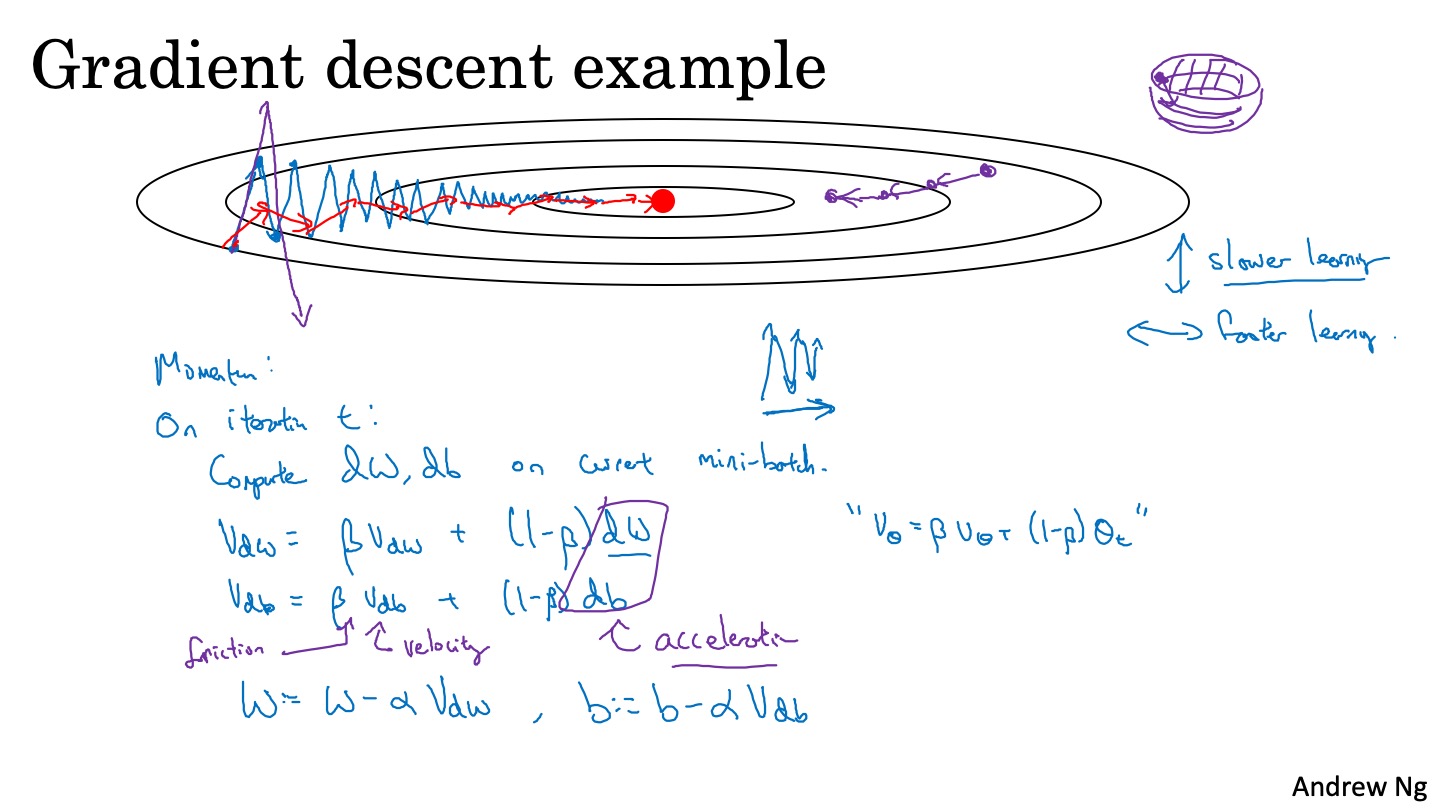 Gradient descent example
slower learning
faster learning.
Momentum:
On iteration t:
Compute dW, db on current mini-batch.
V_dW = β V_dW + (1-β) dW
"V_θ = β V_θ + (1-β) θ_t"
V_db = β V_db + (1-β) db
friction velocity acceleration
W := W - α V_dW , b := b - α V_db
Andrew Ng